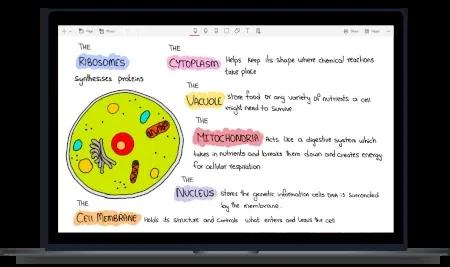 THE
RIBOSOMES
Synthesises proteins
THE
CYTOPLASM Helps keep its shape where chemical reactions
take place
THE
VACUOLE store food or any variety of nutrients a cell
might need to survive.
THE
MITOCHONDRIA Acts like a digestive system which
takes in nutrients and breaks them down and creates energy
for cellular respiration
THE
NUCLEUS stores the genetic information cells DNA is surrounded
by the membrane.
THE
CELL MEMBRANE Holds its structure and controls what enters and leaves the cell